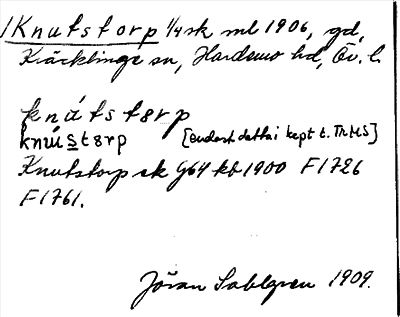 /Knutstorp 1/4 sk ml 1906, gd,
Kräcklinge sn, Hardemo hd, Ör. l.
knútstɜrp
knústɜrp [endast detta i kept t. Th MS]
Knutstorp sk G64 kb 1900 F1726
F1761.
Jöran Sahlgren 1909.